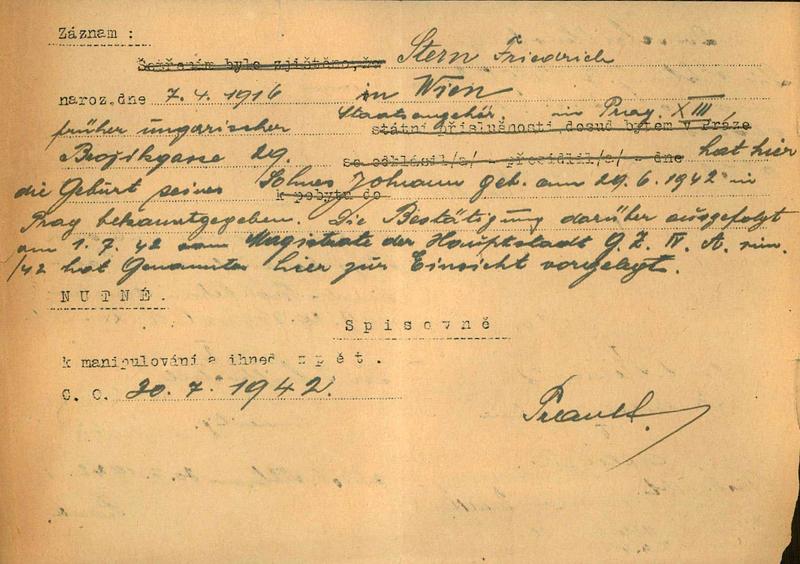 Záznam :
Šetřením bylo zjištěno, že Stern Friedrich
naroz. dne 7. 4. 1916 in Wien
früher ungarischer Staatsangehör. in Prag XIII
státní příslušnosti dosud bytem v Praze
29. hat hier
se odhlásil/a/ - přesídlil/a/ - dne
die Geburt seines Sohnes Johann geb. am 29. 6. 1942 in
k pobytu do
Prag bekanntgegeben. Die Bestätigung darüber ausgefolgt
am 1. 7. 42 vom Magistrate der Hauptstadt G. Z. IV. A.
/42 hat Genannter hier zur Einsicht vorgelegt.
NUTNÉ.
Spisovně
k manipulování a ihned zpět.
C. O. 20. 7. 1942.